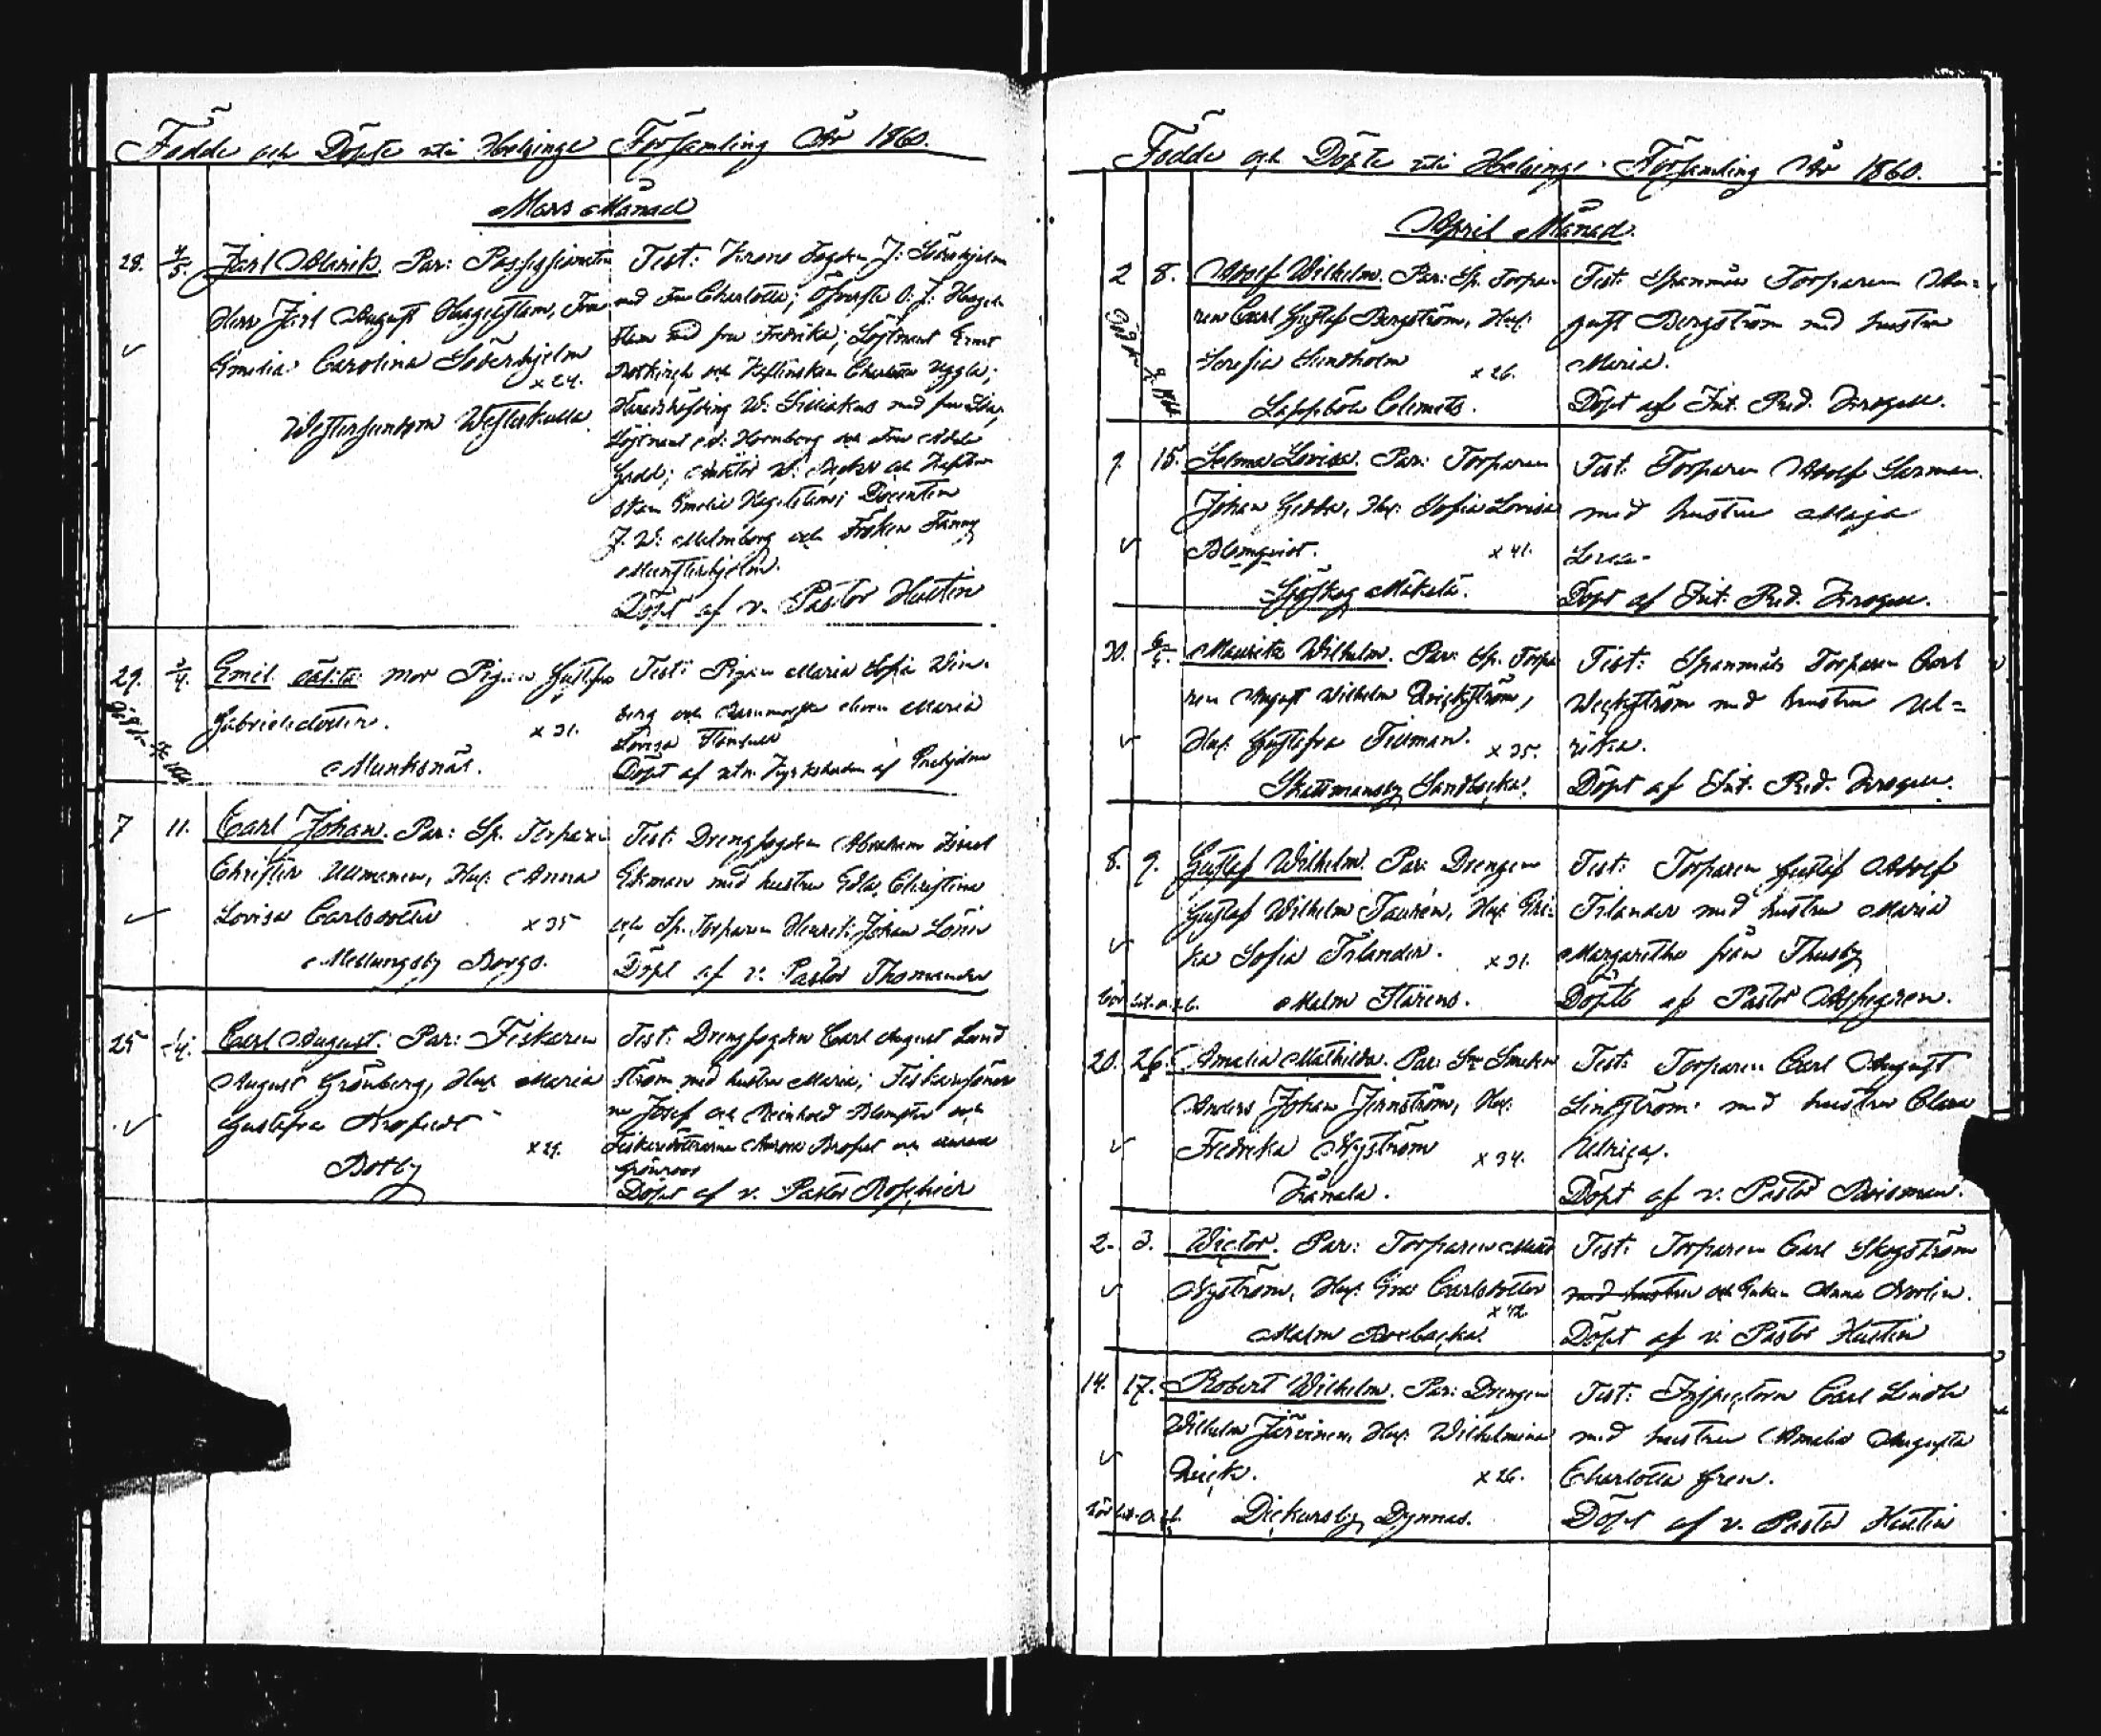 Födde och Döpte uti Helsinge Församling År 1860.
Mars Månad
28. 4/5. Jarl Alarik. Par: Possessionaten
Herr Jarl August Hagelstam, Fru
Emilia Carolina Söderhjelm
x 24.
Westersundom Westerkulla.
Test: Krono Fogden J: Söderhjelm
med Fru Charlotta; Öfverste O: J: Hagel-
stam med fru Fredrika; Löjtnant Ernst
och Charlotta Uggla;
Häradshöfding W: med fru
Löjtnant Hornborg och Fru Adele
Gadd; W: och
Emelie Hagelstam; Docenten
J. W: Malmborg och Fröken Fanny
Munsterhjelm.
Döpt af v. Pastor Hultin
29. 3/4. Emil oäkta mor Pigan Gustafva
Gabrielsdotter. x 31.
Munksnäs.
Test: Pigan Maria Sofia Win-
berg och eleven Maria
Lovisa
Döpt af
7 11. Carl Johan. Par: Sp. Torparen
Christer Ullmanen, Hus: Anna
Lovisa Carlsdotter x 35
Mellungsby Borgs.
Test: Drengfogden Abraham Israel
Ekman med hustru Edla Christina
och Sp. Torparen Henrik Johan Lörin
Döpt af v. Pastor Thomander
25 1/4. Carl August. Par: Fiskaren
August Grönberg, Hus: Maria
Gustafva x 29.
Botby
Test: Drengfogden Carl August Lund
ström med hustru Maria; Fiskaresöner
ne Josef och Reinhold Blomster och
Fiskaredöttrarne och
Grönroos
Döpt af v. Pastor Roschier
Födde och Döpte uti Helsinge Församling År 1860.
April Månad.
2 8. Adolf Wilhelm. Par: Sp. Torpa-
ren Carl Gustaf Bergström, Hus:
Serafia Sundholm x 26.
Lappböle Clemets.
Test: Spanmåls Torparen Au-
gust Bergström med hustru
Maria.
Döpt af Int. Pred. Krogell.
9. 15. Selma Lovisa. Par: Torparen
Johan Hus: Sofia Lovisa
Blomqvist. x 41.
Sjöskog Mäkelä.
Test: Torparen Adolf Sarman
med hustru Maja
Lovisa
Döpt af Int: Pred. Krogell.
30. Mauritz Wilhelm. Par: Sp. Torpa
ren August Wilhelm Weckström,
Hus: Gustafva Tillman. x 35.
Skattmansby Sandbacka.
Test: Spanmåls Torparen Carl
Weckström med hustru Ul=
rika.
Döpt af Int. Pred. Krogell.
8. 9. Gustaf Wilhelm. Par: Drengen
Gustaf Wilhelm Taurén, Hus: Eri-
ka Sofia Frilander. x 31.
Malm Stärens.
Test: Torparen Gustaf Adolf
Frilander med hustru Maria
Margaretha från Thusby
Döpte af Pastor Aspegren.
20. 26. Amalia Mathilda. Par: Smeden
Anders Johan Jernström, Hus:
Fredrika Nyström x 34.
Kånala.
Test: Torparen Carl August
Lindström med hustru Clara
Ulrica.
Döpt af v. Pastor Boisman.
2. 3. Wictor. Par: Torparen
Nyström, Hus: Eva Carlsdotter
x 42
Malm Bocbacka
Test: Torparen Carl Skogström
med hustru och Enkan Anna Nordin.
Döpt af v. Pastor Hultin
14. 17. Robert Wilhelm. Par: Drengen
Wilhelm Järvinen, Hus: Wilhelmina
x 26.
Dickursby Dynnas.
Test: Inspectorn Carl Lindh
med hustru Amalia Augusta
Charlotta
Döpt af v. Pastor Hultin